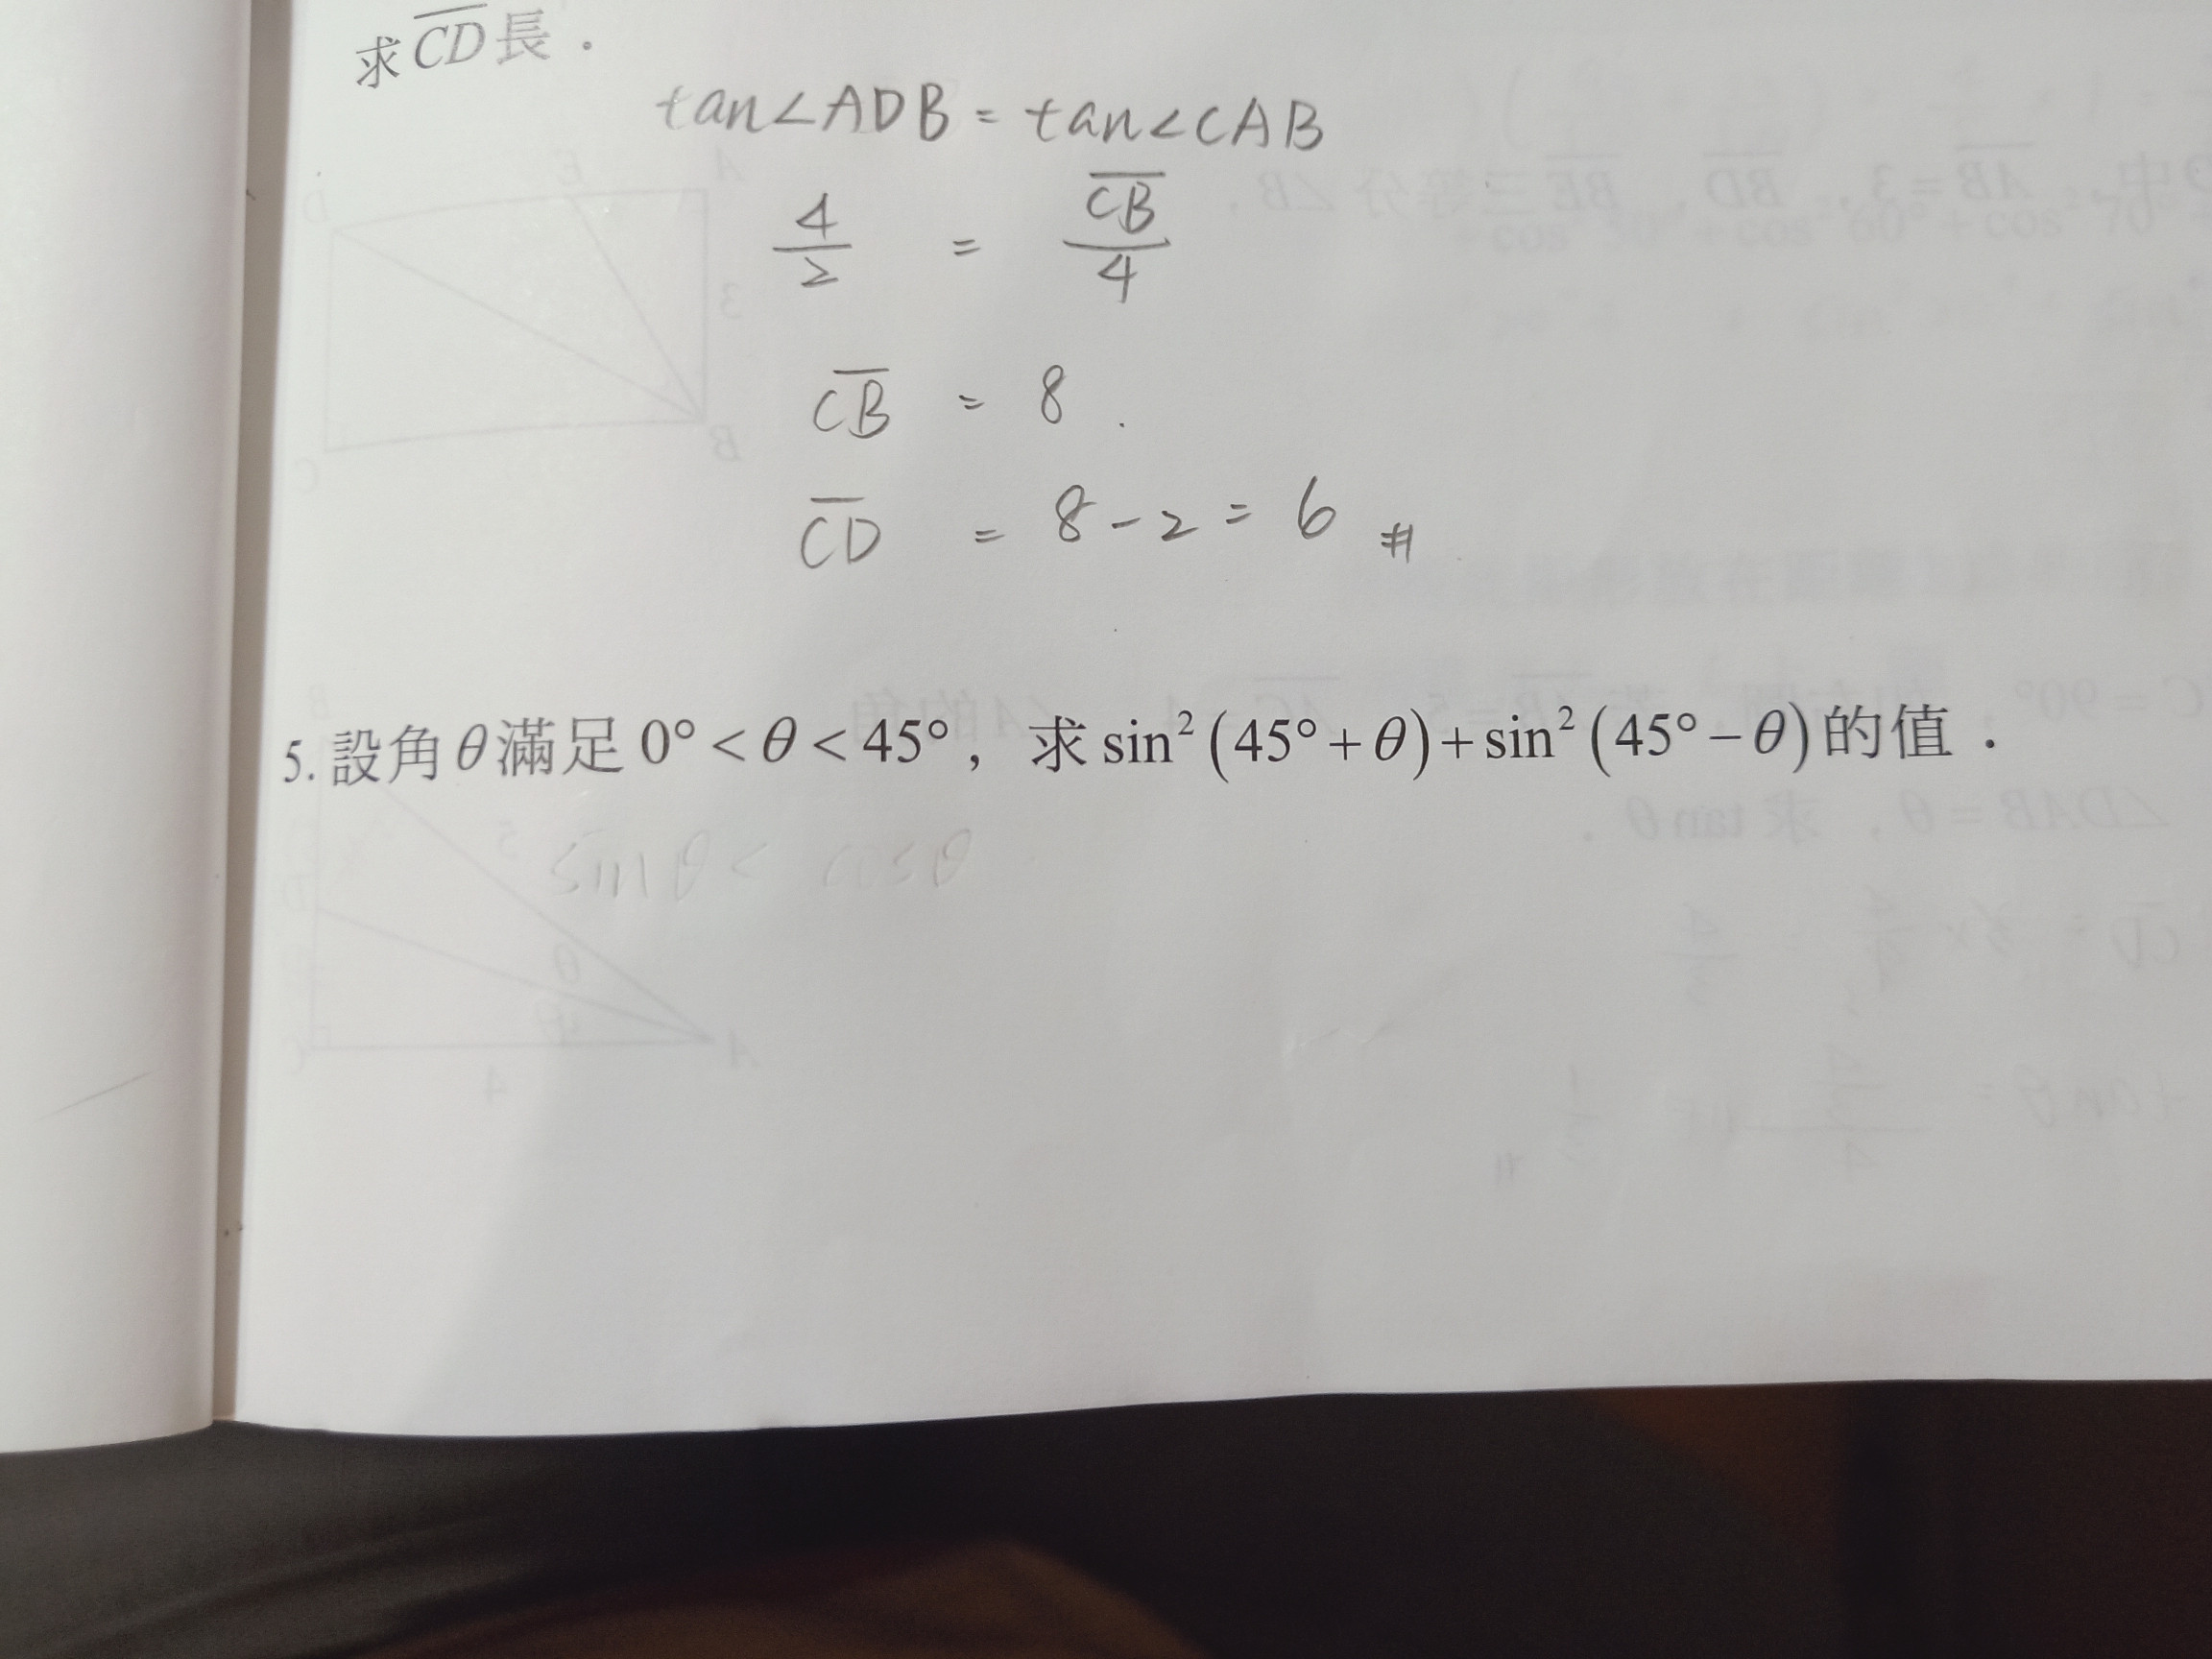 求 $\overline{CD}$ 長．
tan∠ADB = tan∠CAB
$\frac{4}{2}$ = $\frac{\overline{CB}}{4}$
$\overline{CB}$ = 8 .
$\overline{CD}$ = 8 - 2 = 6 #
5. 設角 θ 滿足 0° < θ < 45°，求 sin²(45° + θ) + sin²(45° − θ) 的值．
sin θ < cos θ